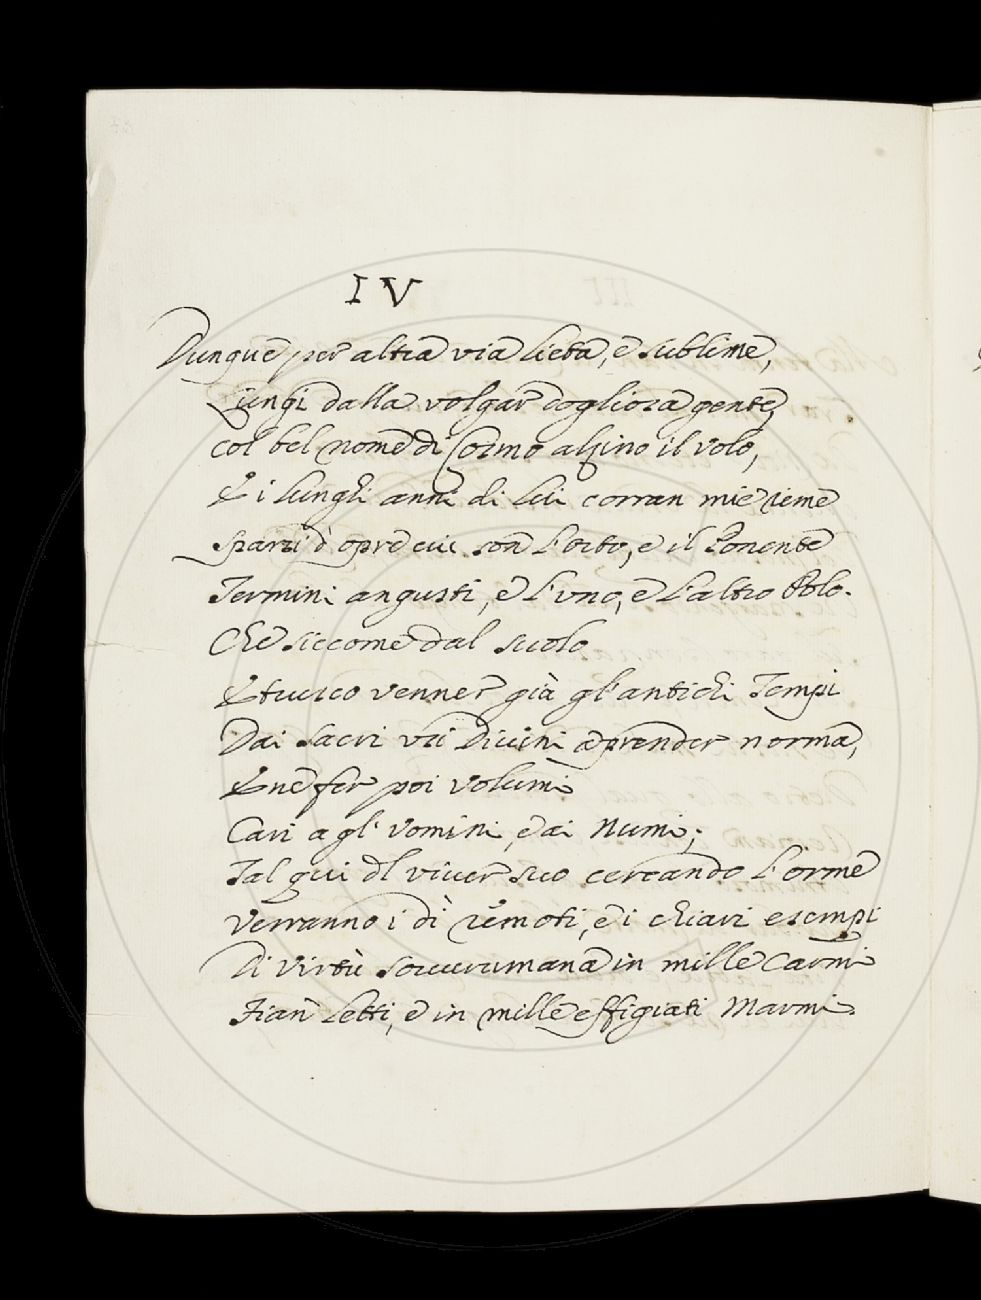 IV
Dunque per altra via lieta, e sublime,
Lungi dalla volgar dogliosa gente
col bel nome di Cosmo alzino il volo,
E i lunghi anni di lui corran mie rime
Sparsi d'opre cui son l'orto, e il Ponente
Termini angusti, e l'uno, e l'altro Polo.
Che siccome dal suolo
Etrusco venner già gl'antichi Tempi
Dai sacri usi Divini a prender norma,
E ne fer poi volumi
Cari a gl' uomini, e ai Numi;
Tal qui dl viver suo cercando l'orme
Verranno i dì remoti, e i chiari esempi
Di Virtù sovrumana in mille Carmi
Fian letti, e in mille effigiati Marmi.